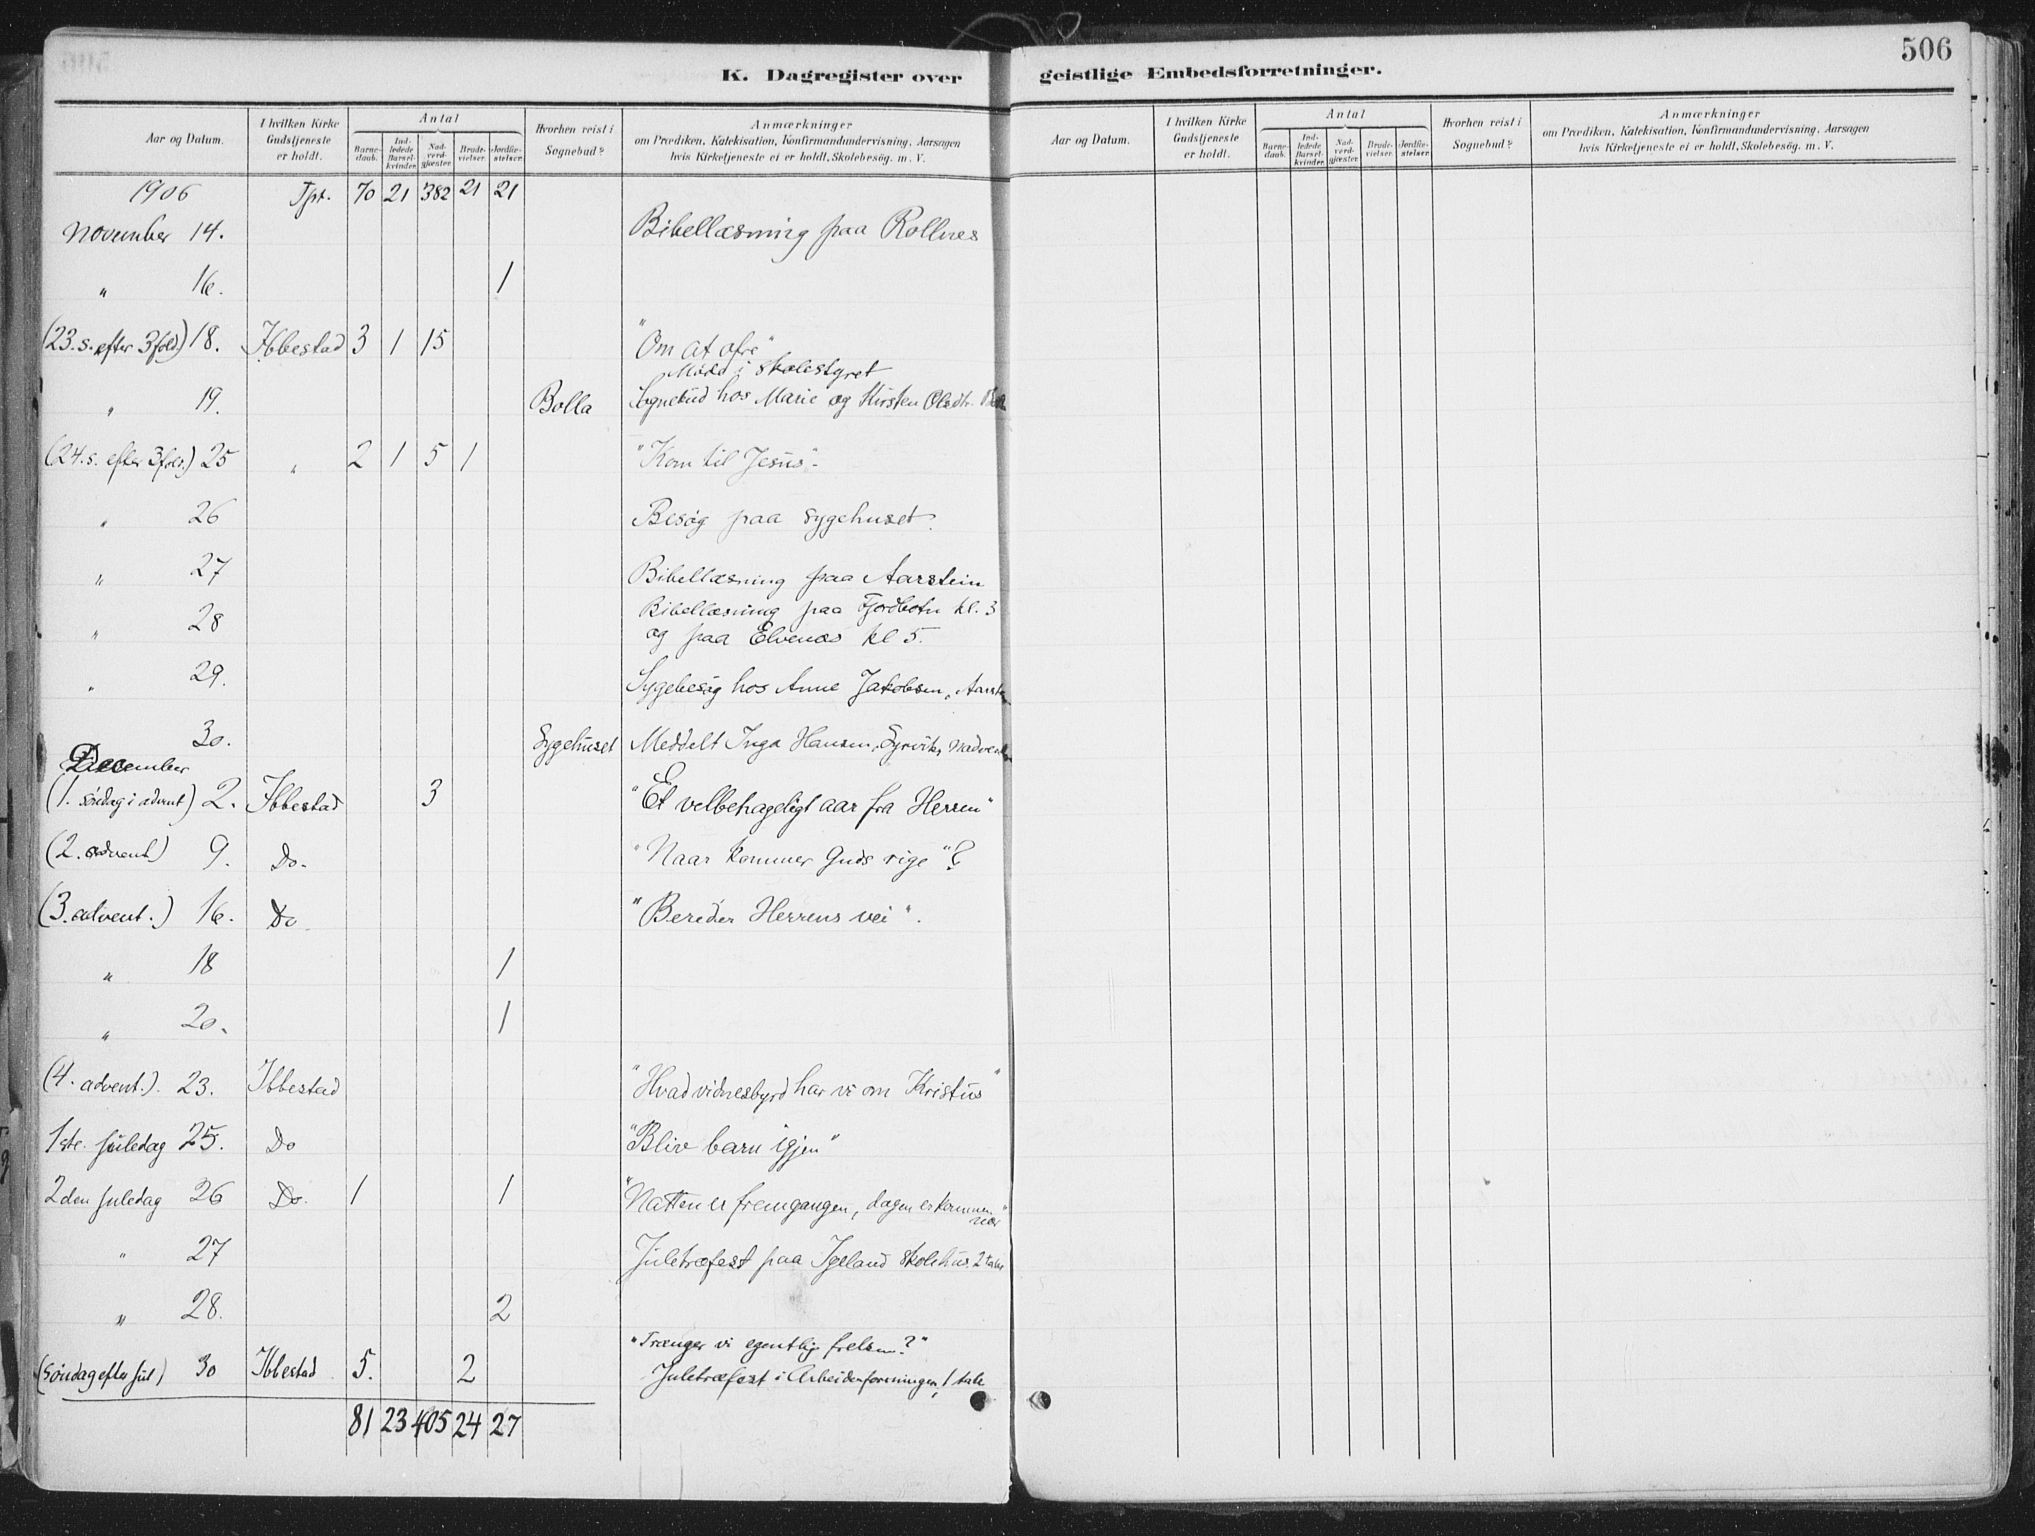 506
K. Dagregister over geistlige Embedsforretninger.
Aar og Datum. I hvilken Kirke Gudstjeneste er holdt. Antal Barnedaab. Indledede Barselkvinder. Nadverdgjæster. Brudevielser. Jordfæstelser. Hvorhen reist i Sognebud? Anmærkninger om Prædiken, Katekisation, Konfirmandundervisning, Aarsagen hvis Kirketjeneste ei er holdt, Skolebesøg. m. V.
Aar og Datum. I hvilken Kirke Gudstjeneste er holdt. Antal Barnedaab. Indledede Barselkvinder. Nadverdgjæster. Brudevielser. Jordfæstelser. Hvorhen reist i Sognebud? Anmærkninger om Prædiken, Katekisation, Konfirmandundervisning, Aarsagen hvis Kirketjeneste ei er holdt, Skolebesøg. m. V.
1906 Tpt. 70 21 382 21 21
November 14. Bibellæsning paa Rollnes
" 16. 1
(23. s. efter 3fold.) 18. Ibbestad 3 1 15 "Om at ofre"
Møde i skolestyret
" 19. Bolla Sognebud hos Marie og Kirsten
(24. s. efter 3fold.) 25 " 2 1 5 1 "Kom til Jesus"-
" 26 Besøg paa sygehuset.
" 27 Bibellæsning paa Aarstein
" 28 Bibellæsning paa Fjordbotn kl. 3
og paa Elvenæs kl 5.
" 29. Sygebesøg hos Anne Jakobsen, Aarstein
30. Sygehuset Meddelt Inga Hansen,
December
(1. søndag i advent) 2. Ibbestad 3 "Et velbehageligt aar fra Herren"
(2. advent) 9. Do. "Naar kommer Guds rige"?
(3. advent.) 16. Do "Bereder Herrens vei".
" 18 1
" 20. 1
(4. advent.). 23. Ibbestad "Hvad vidnesbyrd har vi om Kristus"
1ste juledag 25. Do "Bliv barn igjen"
2den juledag 26 Do. 1 1 "Natten er fremgangen, dagen er kommen nær"
" 27 Juletræfest paa Igeland skolehus. 2 taler
" 28. 2
"Trænger vi egentlig frelsen?"
(Søndag efter jul) 30 Ibbestad 5. 2 Juletræfest i Arbeiderforeningen, 1 tale
81 23 405 24 27